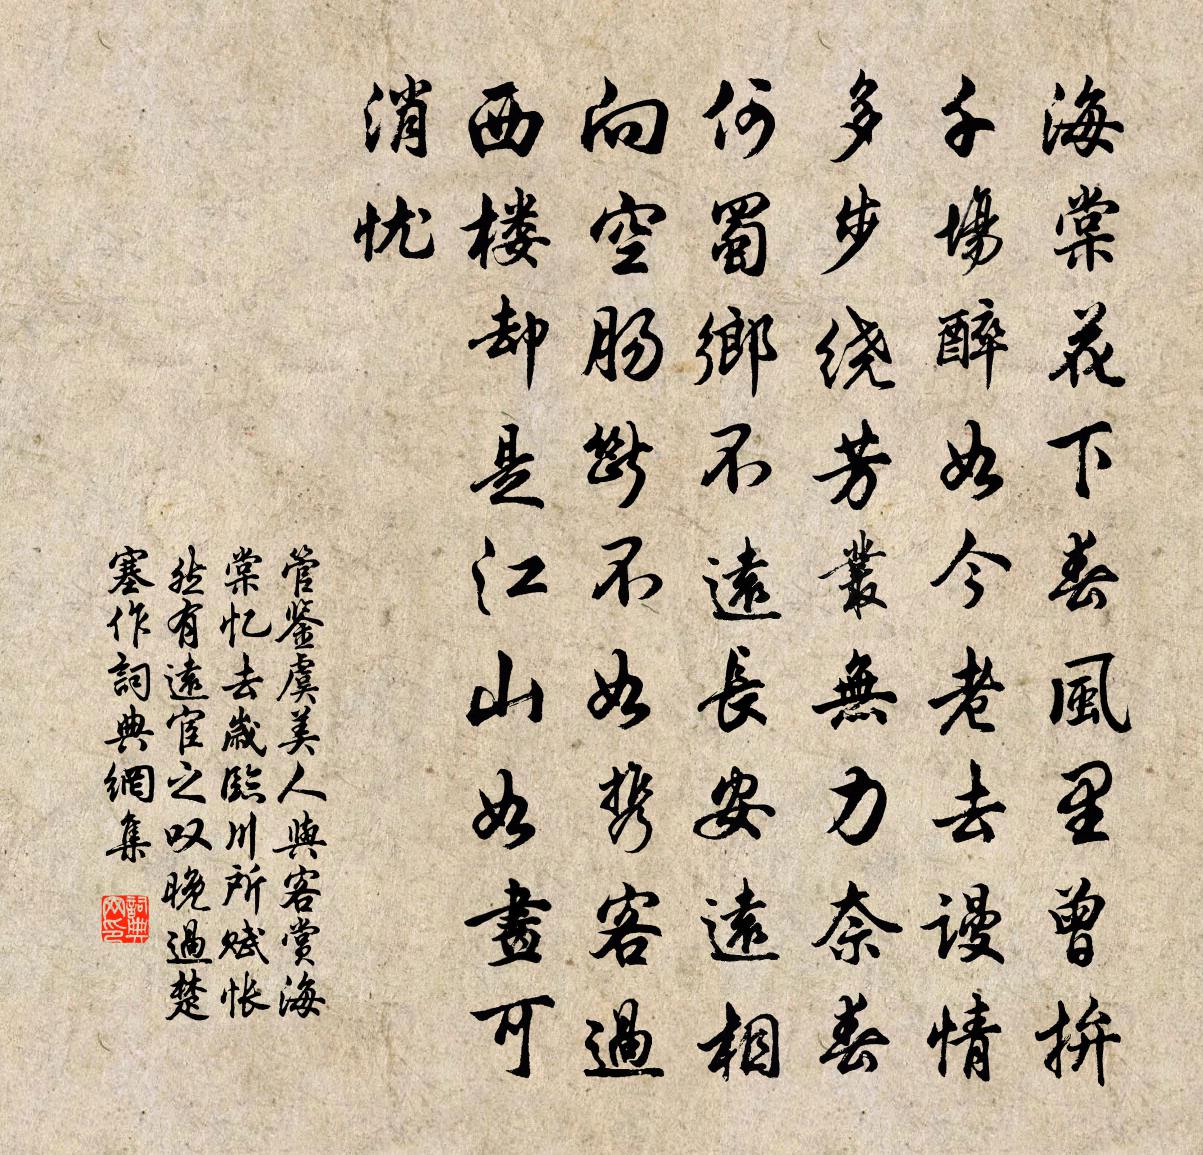 海棠花下春風里曾拚
千場醉如今老去謾情
多步绕芳叢無力奈春
何蜀鄉不遠長安遠相
向空腸斷不如携客過
西楼却是江山如畫可
消忧
管鉴虞美人與客赏海
棠忆去歲臨川所赋怅
然有遠宦之叹晚過楚
塞作詞典網集
詞典
网印